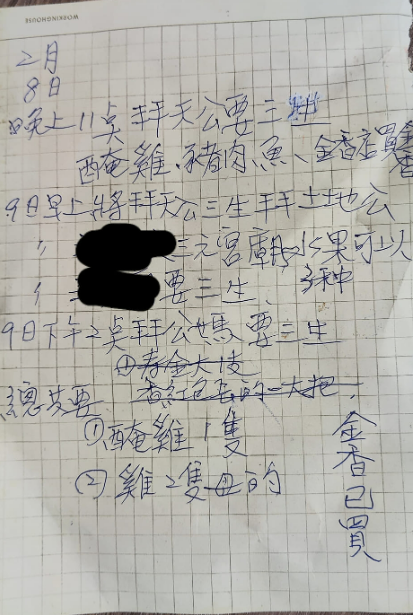 WORKINGHOUSE
2月
8日
晚上11點拜天公要三牲
醃雞、豬肉、魚、金香店買金香
9日早上將拜天公三生拜土地公
〃 三元宮廟 水果可以
〃 要三生、多种
9日下午2點拜公媽要三生
寿金大
香紅包的一大把
總共要
①醃雞1隻
②雞2隻 的
金香已買